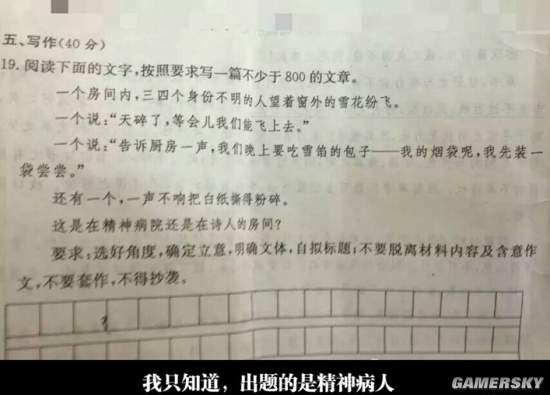 五、写作(40分)
19.阅读下面的文字,按照要求写一篇不少于800的文章。
一个房间内,三四个身份不明的人望着窗外的雪花纷飞。
一个说:“天碎了,等会儿我们能飞上去。”
一个说:“告诉厨房一声,我们晚上要吃雪馅的包子——我的烟袋呢,我先装一
袋尝尝。”
还有一个,一声不响把白纸撕得粉碎。
这是在精神病院还是在诗人的房间?
要求:选好角度,确定立意,明确文体,自拟标题;不要脱离材料内容及含意作
文,不要套作,不得抄袭。
我只知道，出题的是精神病人
GAMERSKY